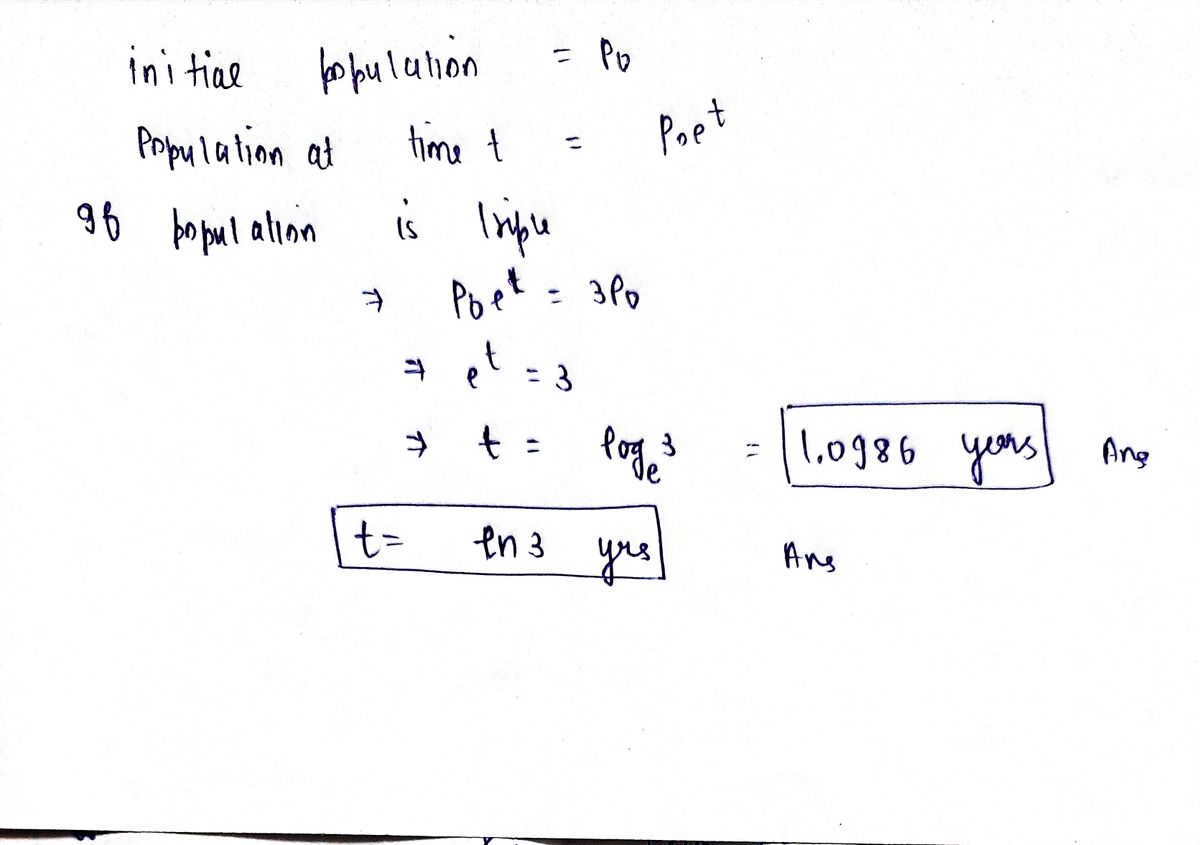 initial population = P0
Population at time t = P0e^t
If population is triple
⇒ P0e^t = 3P0
⇒ e^t = 3
⇒ t = log_e 3 = 1.0986 years Ans
t = ln 3 yrs Ans